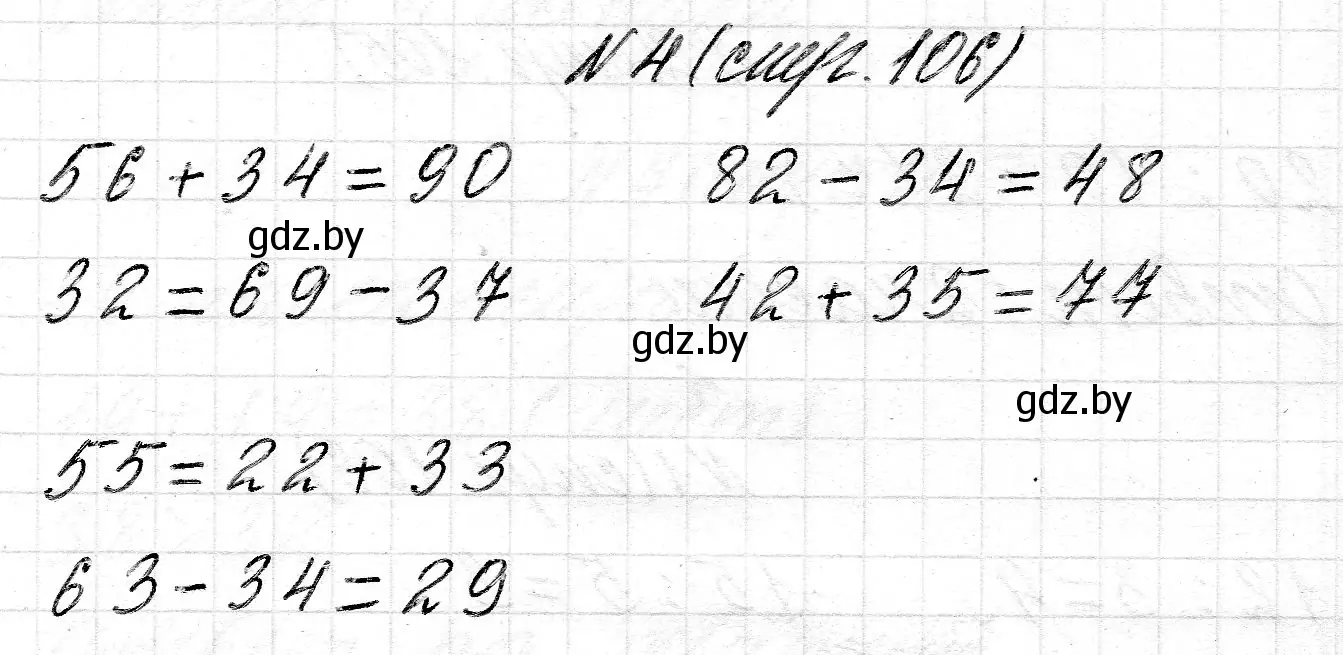 N 4 (стр. 106)
56 + 34 = 90 82 - 34 = 48
gdz.by
32 = 69 - 37 42 + 35 = 77
gdz.by
gdz.by
55 = 22 + 33
63 - 34 = 29